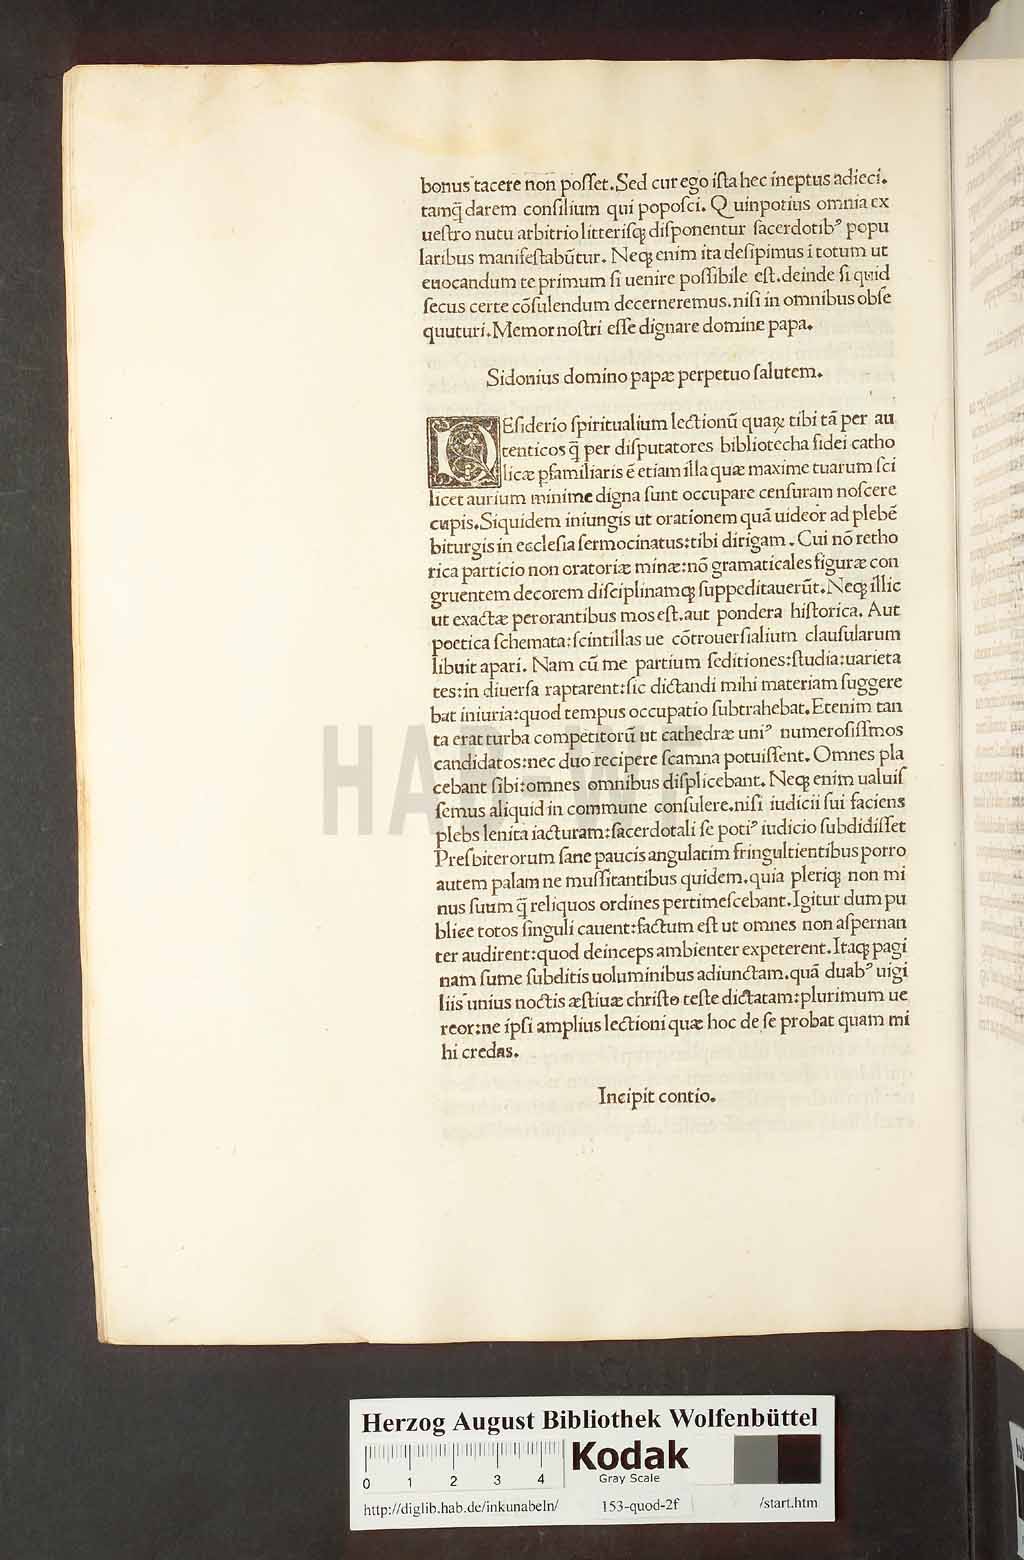 bonus tacere non poſſet. Sed cur ego iſta hec ineptus adieci.
tamq̃ darem conſilium qui popoſci. Quinpotius omnia ex
ueſtro nutu arbitrio litteriſqꝫ diſponentur ſacerdotibꝰ popu
laribus manifeſtabũtur. Neqꝫ enim ita deſipimus ĩ totum ut
euocandum te primum ſi uenire poſſibile eſt. deinde ſi quid
ſecus certe cõſulendum decerneremus. niſi in omnibus obſe
quuturi. Memor noſtri eſſe dignare domine papa.
Sidonius domino papæ perpetuo ſalutem.
DEſiderio ſpiritualium lectionũ quaꝝ tibi tã per au
tenticos q̃ per diſputatores bibliotecha fidei catho
licæ pfamiliaris ẽ etiam illa quæ maxime tuarum ſci
licet aurium minime digna ſunt occupare cenſuram noſcere
cupis. Siquidem iniungis ut orationem quã uideor ad plebẽ
biturgis in eccleſia ſermocinatus: tibi dirigam. Cui nõ retho
rica particio non oratoriæ minæ: nõ gramaticales figuræ con
gruentem decorem diſciplinamqꝫ ſuppeditauerũt. Neqꝫ illic
ut exactæ perorantibus mos eſt. aut pondera hiſtorica. Aut
poetica ſchemata: ſcintillas ue cõtrouerſialium clauſularum
libuit apari. Nam cũ me partium ſeditiones: ſtudia: uarieta
tes: in diuerſa raptarent: ſic dictandi mihi materiam ſuggere
bat iniuria: quod tempus occupatio ſubtrahebat. Etenim tan
ta erat turba competitorũ ut cathedræ uniꝰ numeroſiſſmos
candidatos: nec duo recipere ſcamna potuiſſent. Omnes pla
cebant ſibi: omnes omnibus diſplicebant. Neqꝫ enim ualuiſ
ſemus aliquid in commune conſulere. niſi iudicii ſui faciens
plebs lenita iacturam: ſacerdotali ſe potiꝰ iudicio ſubdidiſſet
Preſbiterorum ſane paucis angulatim fringultientibus porro
autem palam ne muſſitantibus quidem. quia pleriqꝫ non mi
nus ſuum q̃ reliquos ordines pertimeſcebant. Igitur dum pu
blice totos ſinguli cauent: factum eſt ut omnes non aſpernan
ter audirent: quod deinceps ambienter expeterent. Itaqꝫ pagi
nam ſume ſubditis uoluminibus adiunctam. quã duabꝰ uigi
liis unius noctis æſtiuæ chriſto teſte dictatam: plurimum ue
reor: ne ipſi amplius lectioni quæ hoc de ſe probat quam mi
hi credas.
Incipit contio.
HAB-WF
Herzog August Bibliothek Wolfenbüttel
Kodak
Gray Scale
0 1 2 3 4
http://diglib.hab.de/inkunabeln/ 153-quod-2f /start.htm